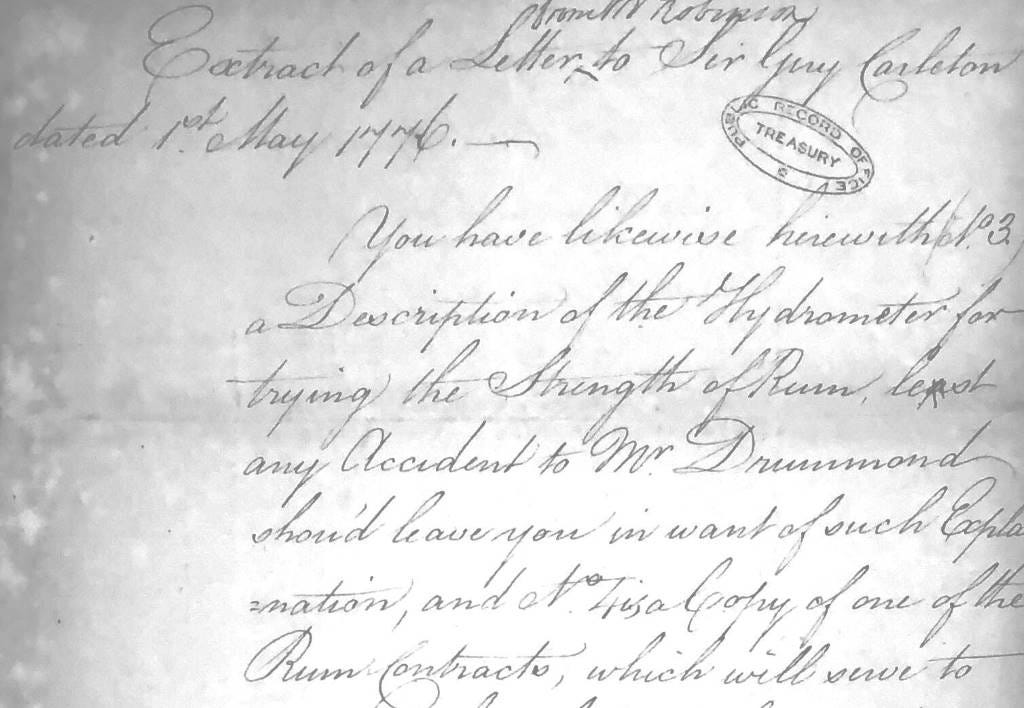 from Mr Robinson
Extract of a Letter ^ to Sir Guy Carleton
dated 1st May 1776. —
PUBLIC RECORD OFFICE
TREASURY
You have likewise herewith (No. 3)
a Description of the Hydrometer for
trying the Strength of Rum, lest
any Accident to Mr Drummond
shou'd leave you in want of such Expla
=nation, and No. 4 is a Copy of one of the
Rum Contracts, which will serve to